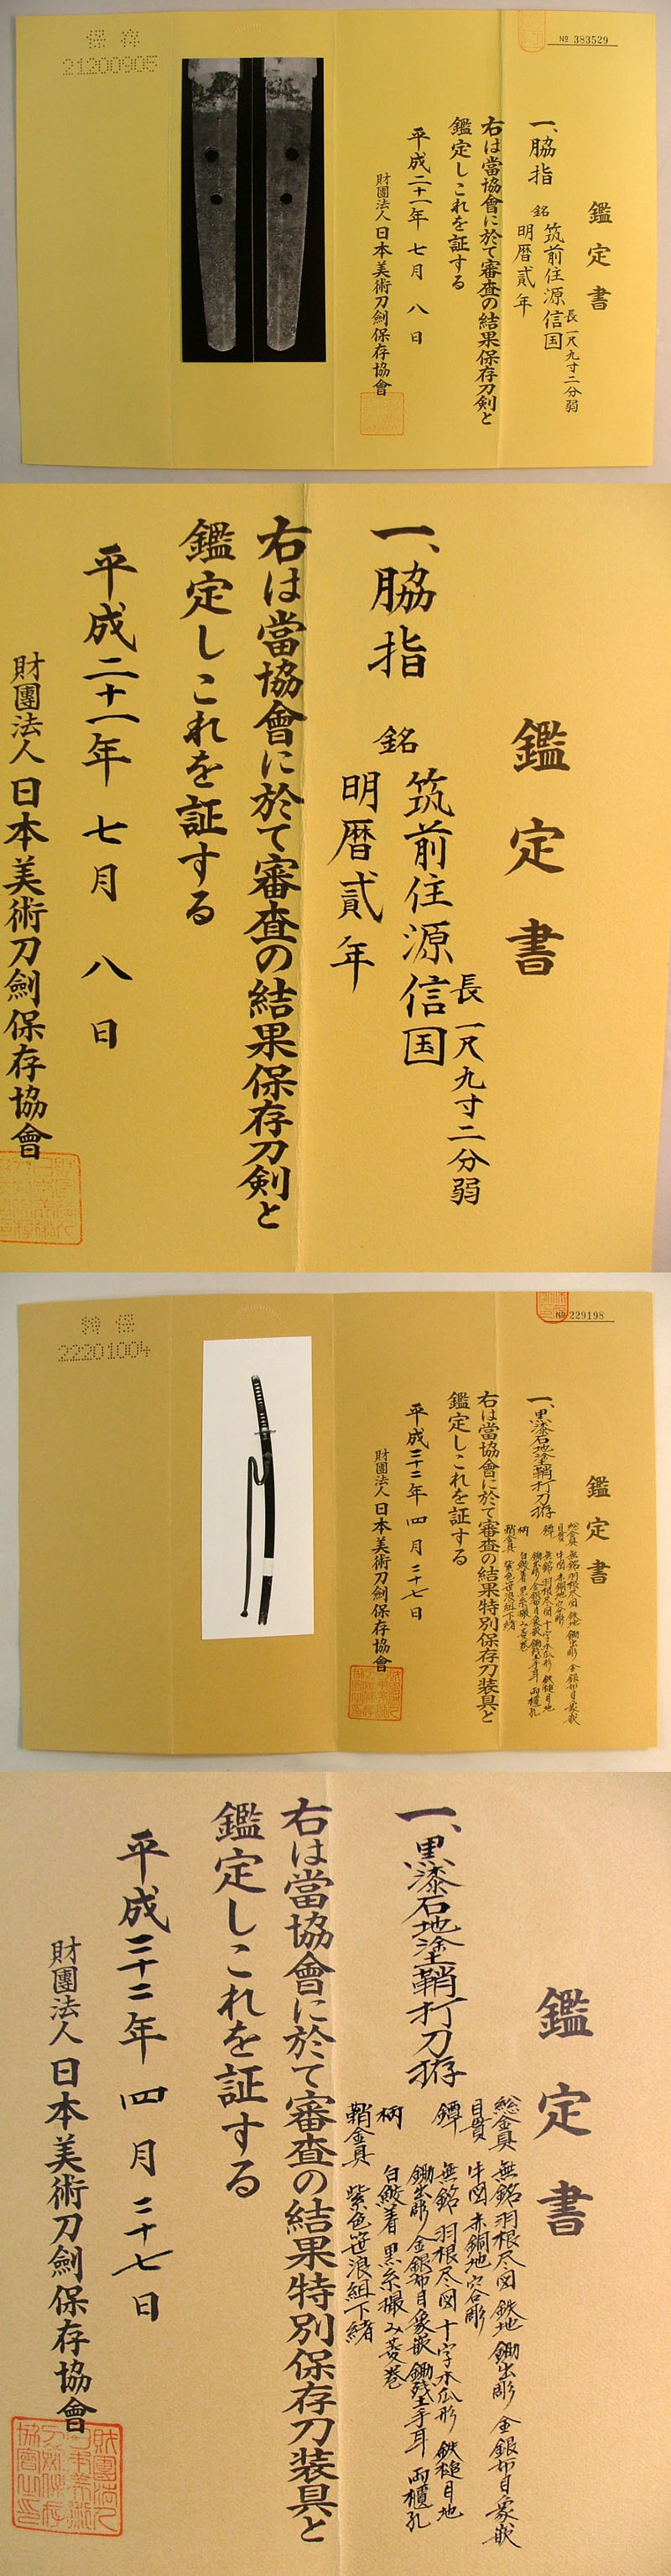 保存
21200905
No 383529
鑑定書
一、脇指
長一尺九寸二分弱
銘
筑前住源信国
明暦貳年
右は當協會に於て審査の結果保存刀剣と
鑑定しこれを証する
平成二十一年七月八日
財團法人日本美術刀劍保存協會
鑑定書
一、脇指
長一尺九寸二分弱
銘
筑前住源信国
明暦貳年
右は當協會に於て審査の結果保存刀剣と
鑑定しこれを証する
平成二十一年七月八日
財團法人日本美術刀劍保存協會
特保
22201004
No 229198
鑑定書
一、黒漆石地塗鞘打刀拵
総金具 無銘 羽根尽図 鉄地 鋤出彫 金銀布目象嵌
目貫 牛図 赤銅地 容彫
鐔 無銘 羽根尽図 十字木瓜形 鉄槌目地
鋤出彫 金銀布目象嵌 鋤残土手耳 両櫃孔
柄 白鮫着 黒糸撮み菱巻
鞘金具 紫色笹浪組下緒
右は當協會に於て審査の結果特別保存刀装具と
鑑定しこれを証する
平成二十二年四月二十七日
財團法人日本美術刀劍保存協會
鑑定書
一、黒漆石地塗鞘打刀拵
総金具 無銘 羽根尽図 鉄地 鋤出彫 金銀布目象嵌
目貫 牛図 赤銅地 容彫
鐔 無銘 羽根尽図 十字木瓜形 鉄槌目地
鋤出彫 金銀布目象嵌 鋤残土手耳 両櫃孔
柄 白鮫着 黒糸撮み菱巻
鞘金具 紫色笹浪組下緒
右は當協會に於て審査の結果特別保存刀装具と
鑑定しこれを証する
平成二十二年四月二十七日
財團法人日本美術刀劍保存協會